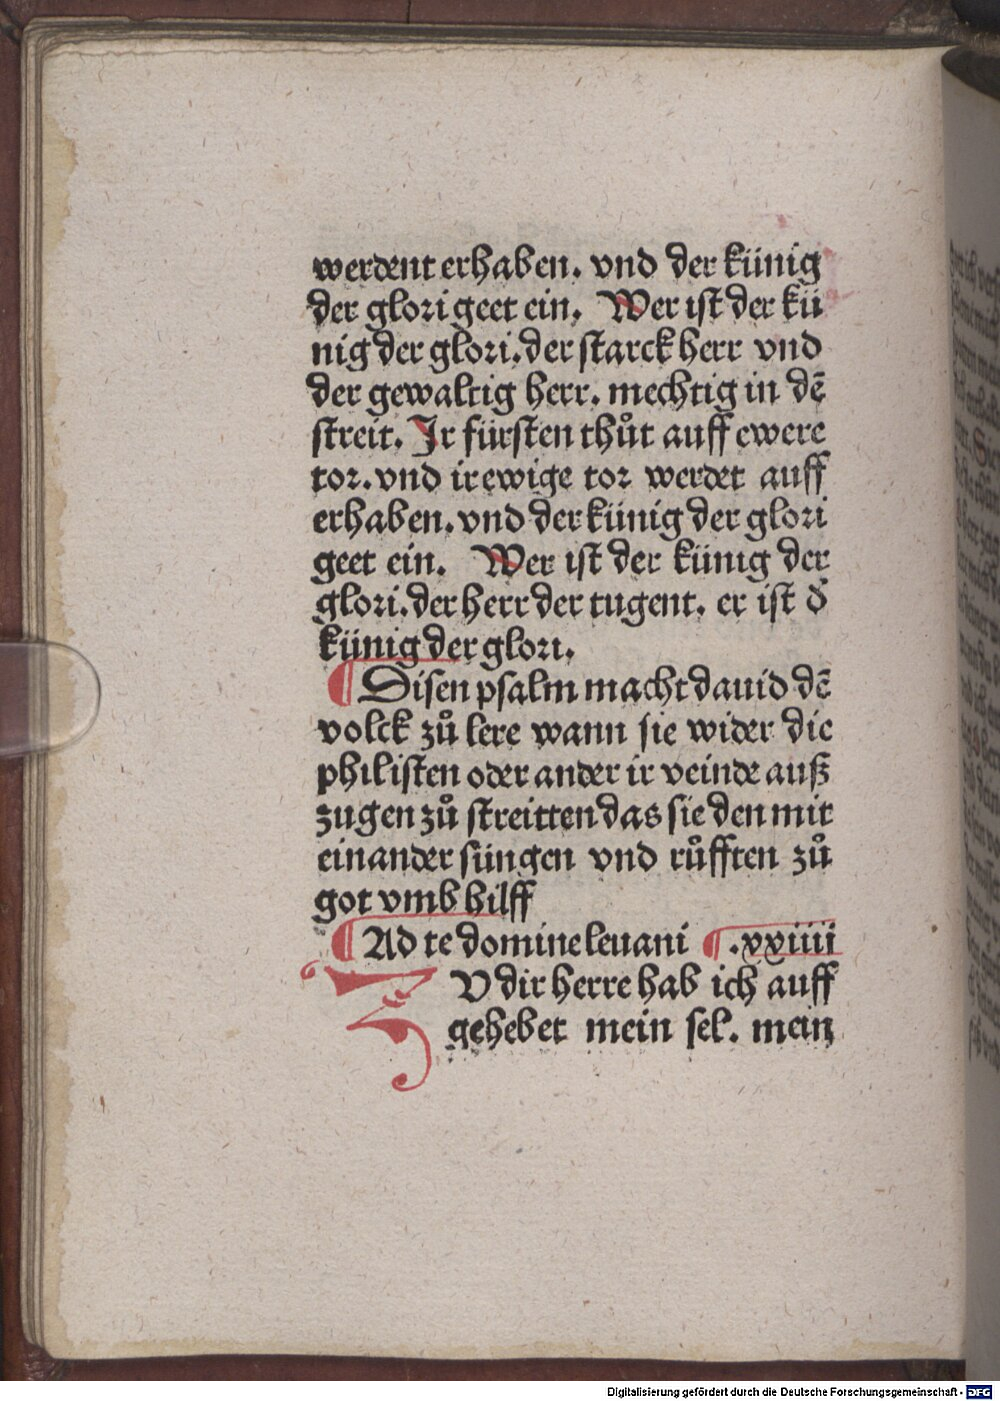 werdent erhaben. vnd der künig
der glori geet ein. Wer ist der kü
nig der glori. der starck herr vnd
der gewaltig herr. mechtig in dē
streit. Ir fürsten thůt auff ewere
tor. vnd ir ewige tor werdet auff
erhaben. vnd der künig der glori
geet ein. Wer ist der künig der
glori. der herr der tugent. er ist d̄
künig der glori.
¶ Disen psalm macht dauid dē
volck zů lere wann sie wider die
philisten oder ander ir veinde auß
zugen zů streitten das sie den mit
einander süngen vnd růfften zů
got vmb hilff
¶ Ad te domine leuani ¶ .xxiiii
ZV dir herre hab ich auff
gehebet mein sel. mein
Digitalisierung gefördert durch die Deutsche Forschungsgemeinschaft - DFG